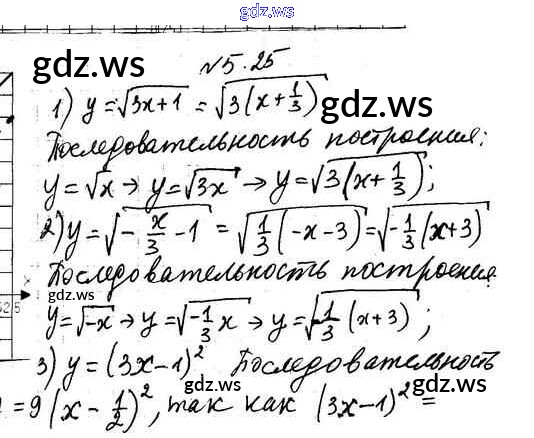 gdz.ws
№5.25
gdz.ws gdz.ws
1) y = √(3x+1) = √(3(x+1/3))
Последовательность построения:
y = √x → y = √(3x) → y = √(3(x+1/3));
2) y = √(-x/3 - 1) = √(1/3(-x-3)) = √(-1/3(x+3))
Последовательность построения
gdz.ws gdz.ws
525
y = √(-x) → y = √(-1/3 x) → y = √(-1/3 (x+3));
3) y = (3x-1)² Последовательность
gdz.ws gdz.ws
= 9(x - 1/2)², так как (3x-1)² =